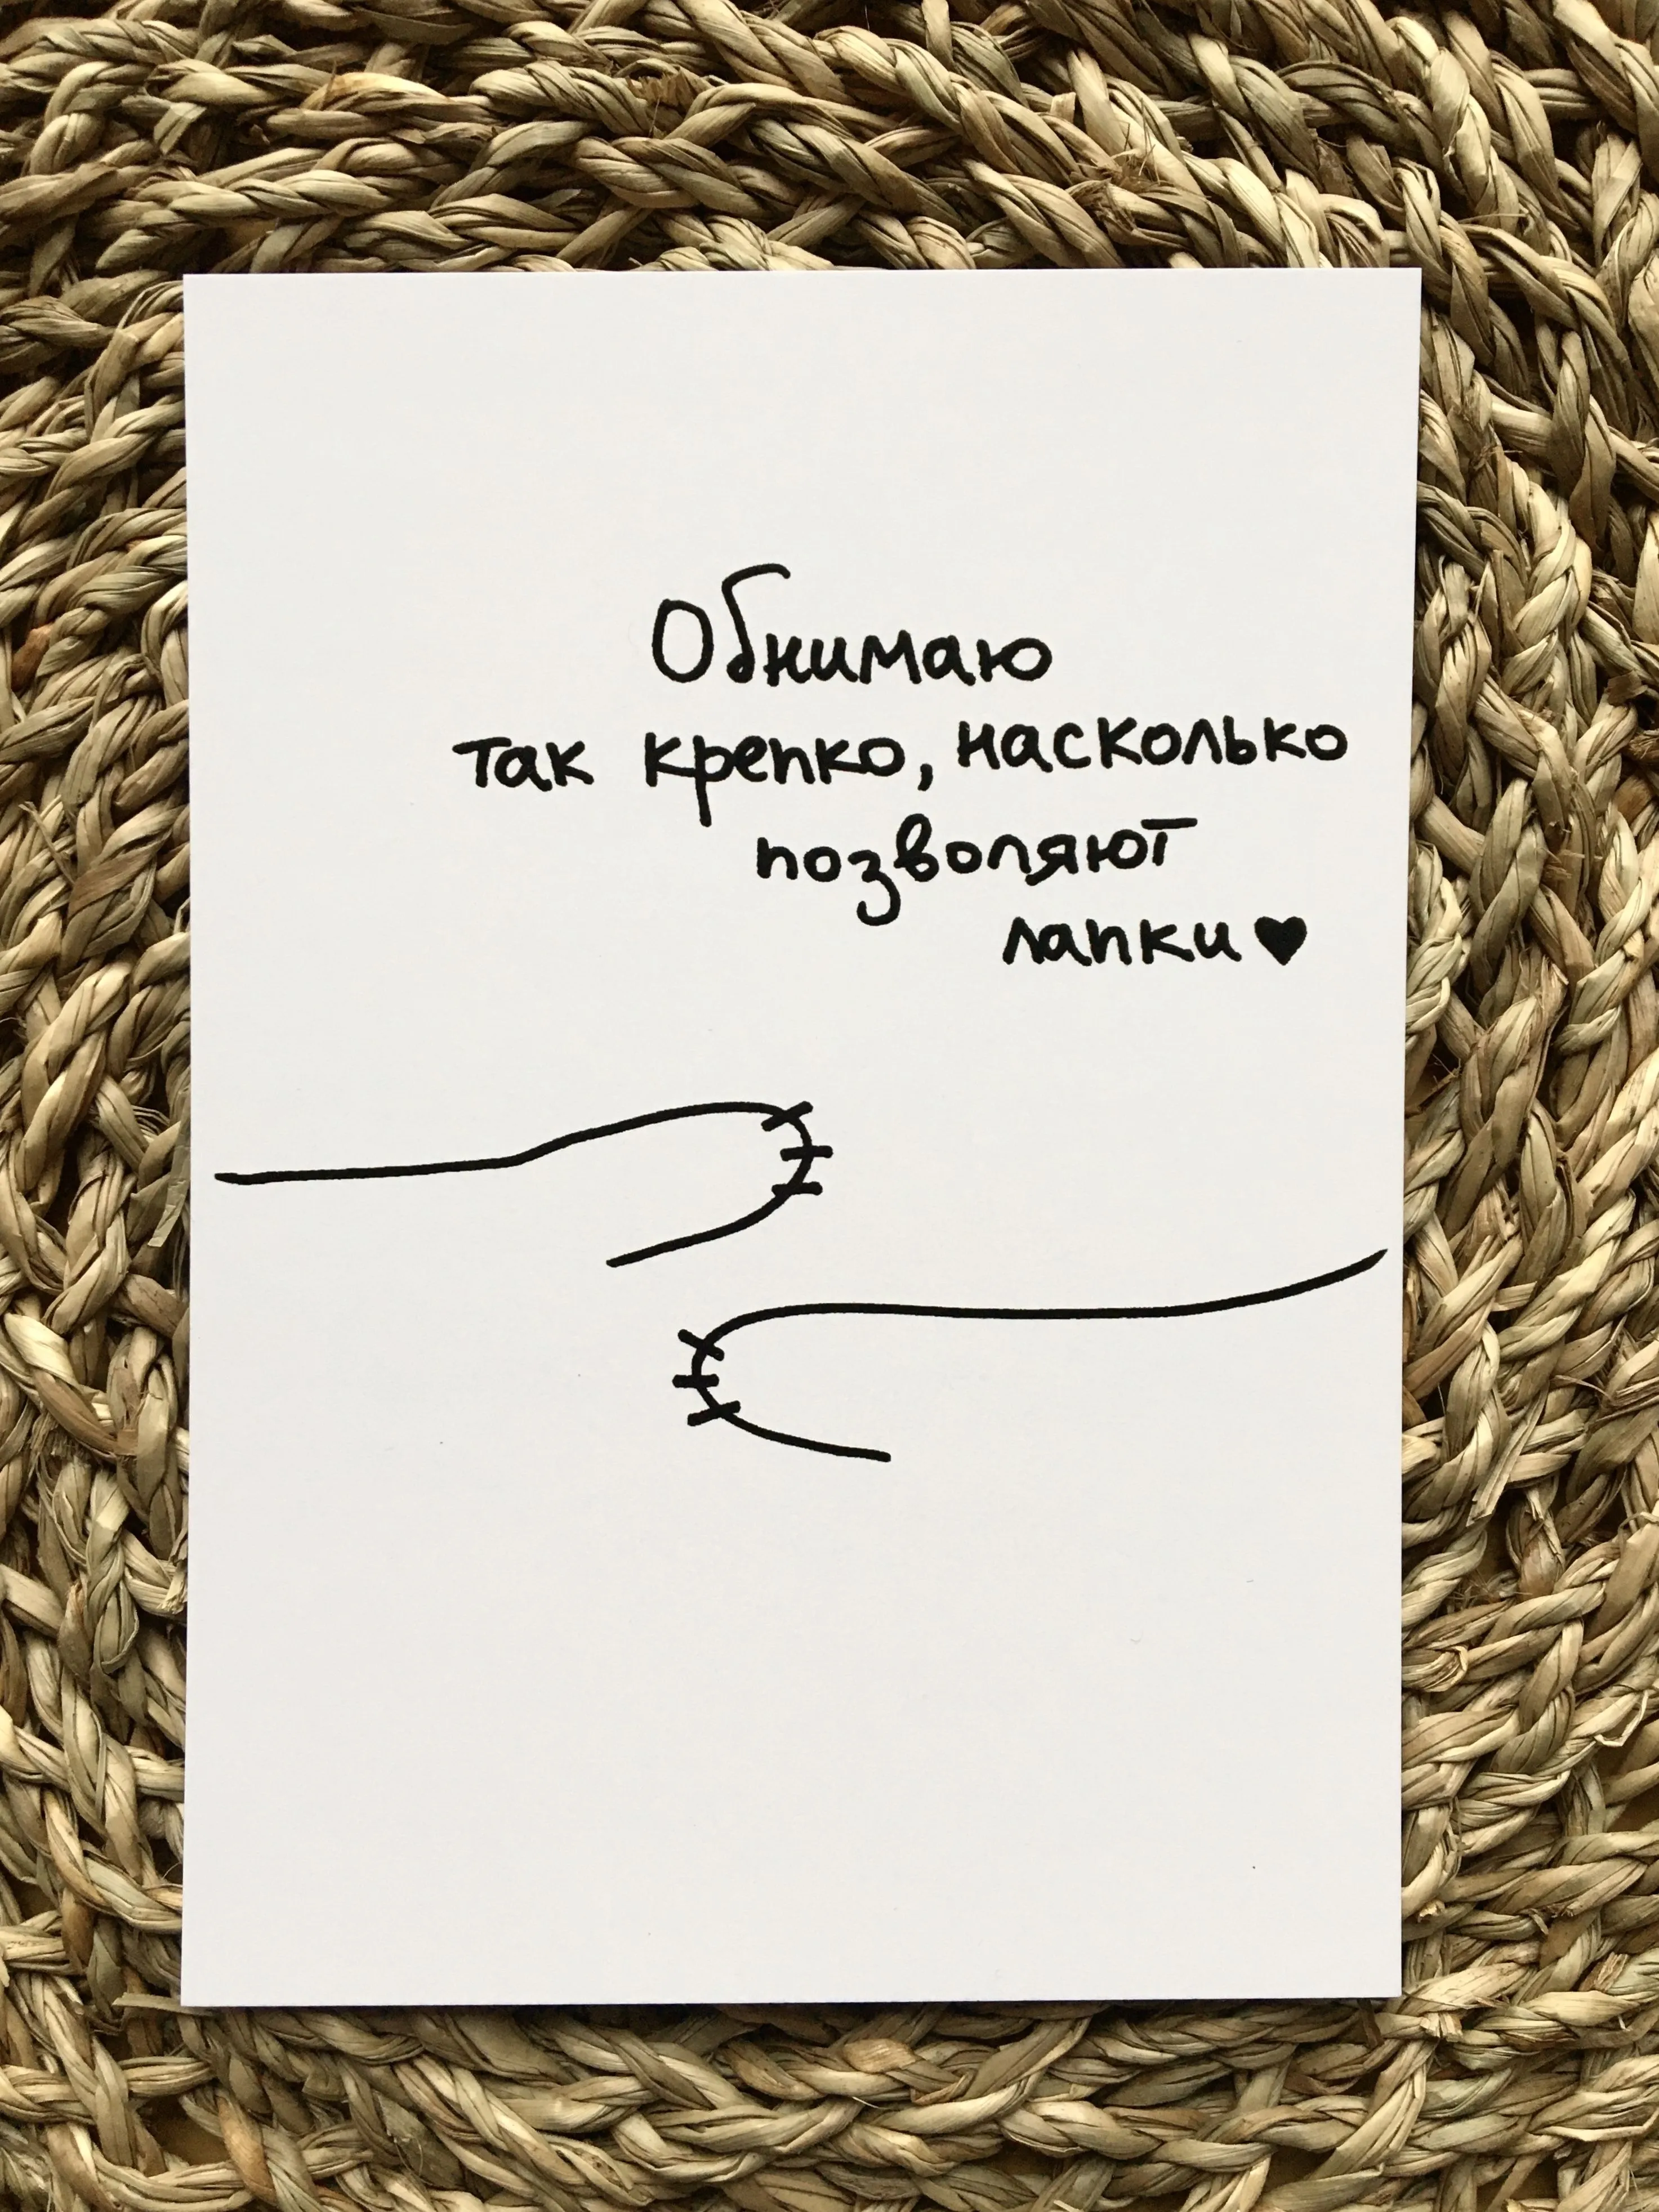 Обнимаю
так крепко, насколько
позволяют
лапки♥